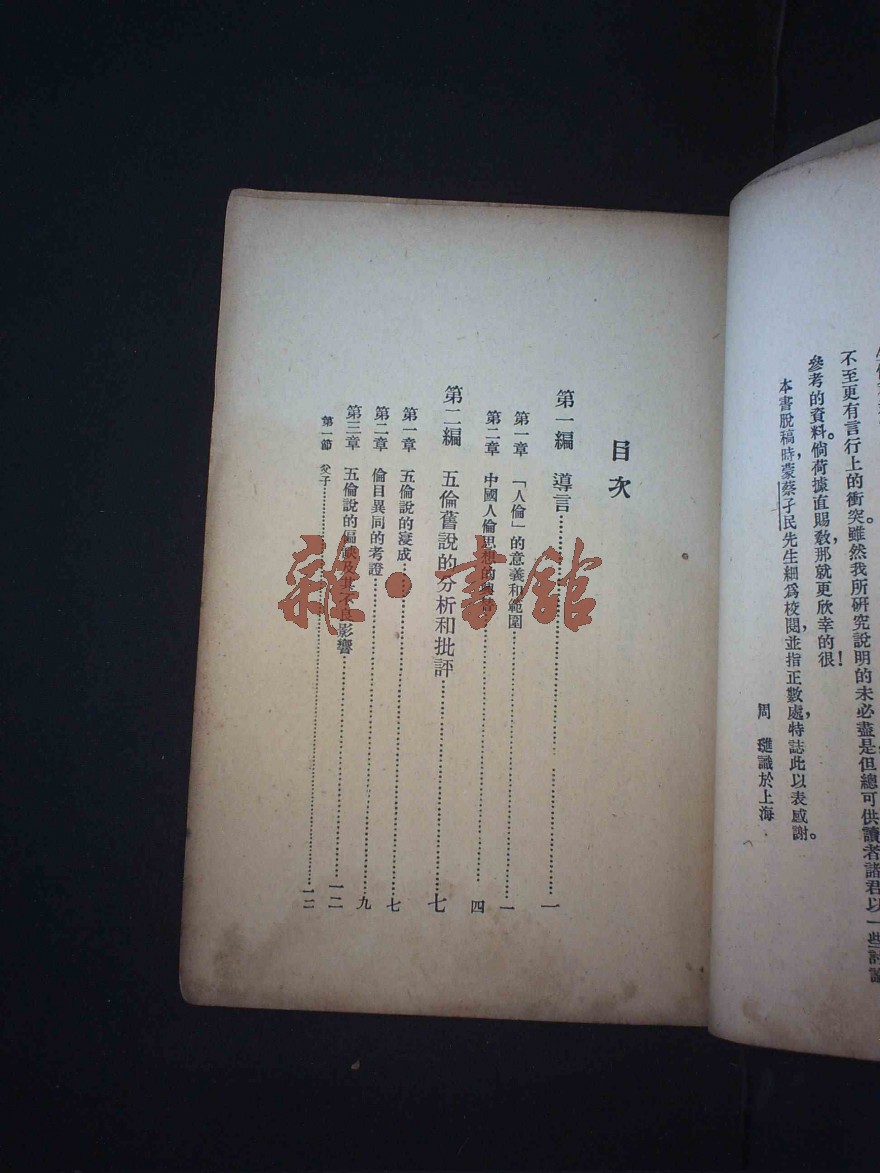 不至更有言行上的衝突。雖然我所研究說明的未必盡是但總可供讀者諸君以一些討論
參考的資料。倘荷據直賜教,那就更欣幸的很!
本書脫稿時,蒙蔡孑民先生細爲校閱並指正數處,特誌此以表感謝。
周 識於上海
目次
第一編 導言 一
第一章 「人倫」的意義和範圍 一
第二章 中國人倫思想的 四
第二編 五倫舊說的分析和批評 七
第一章 五倫說的漫成 七
第二章 倫目異同的考證 九
第三章 五倫說的偏缺及其不良影響 一二
第一節 父子 一二
雜·書館